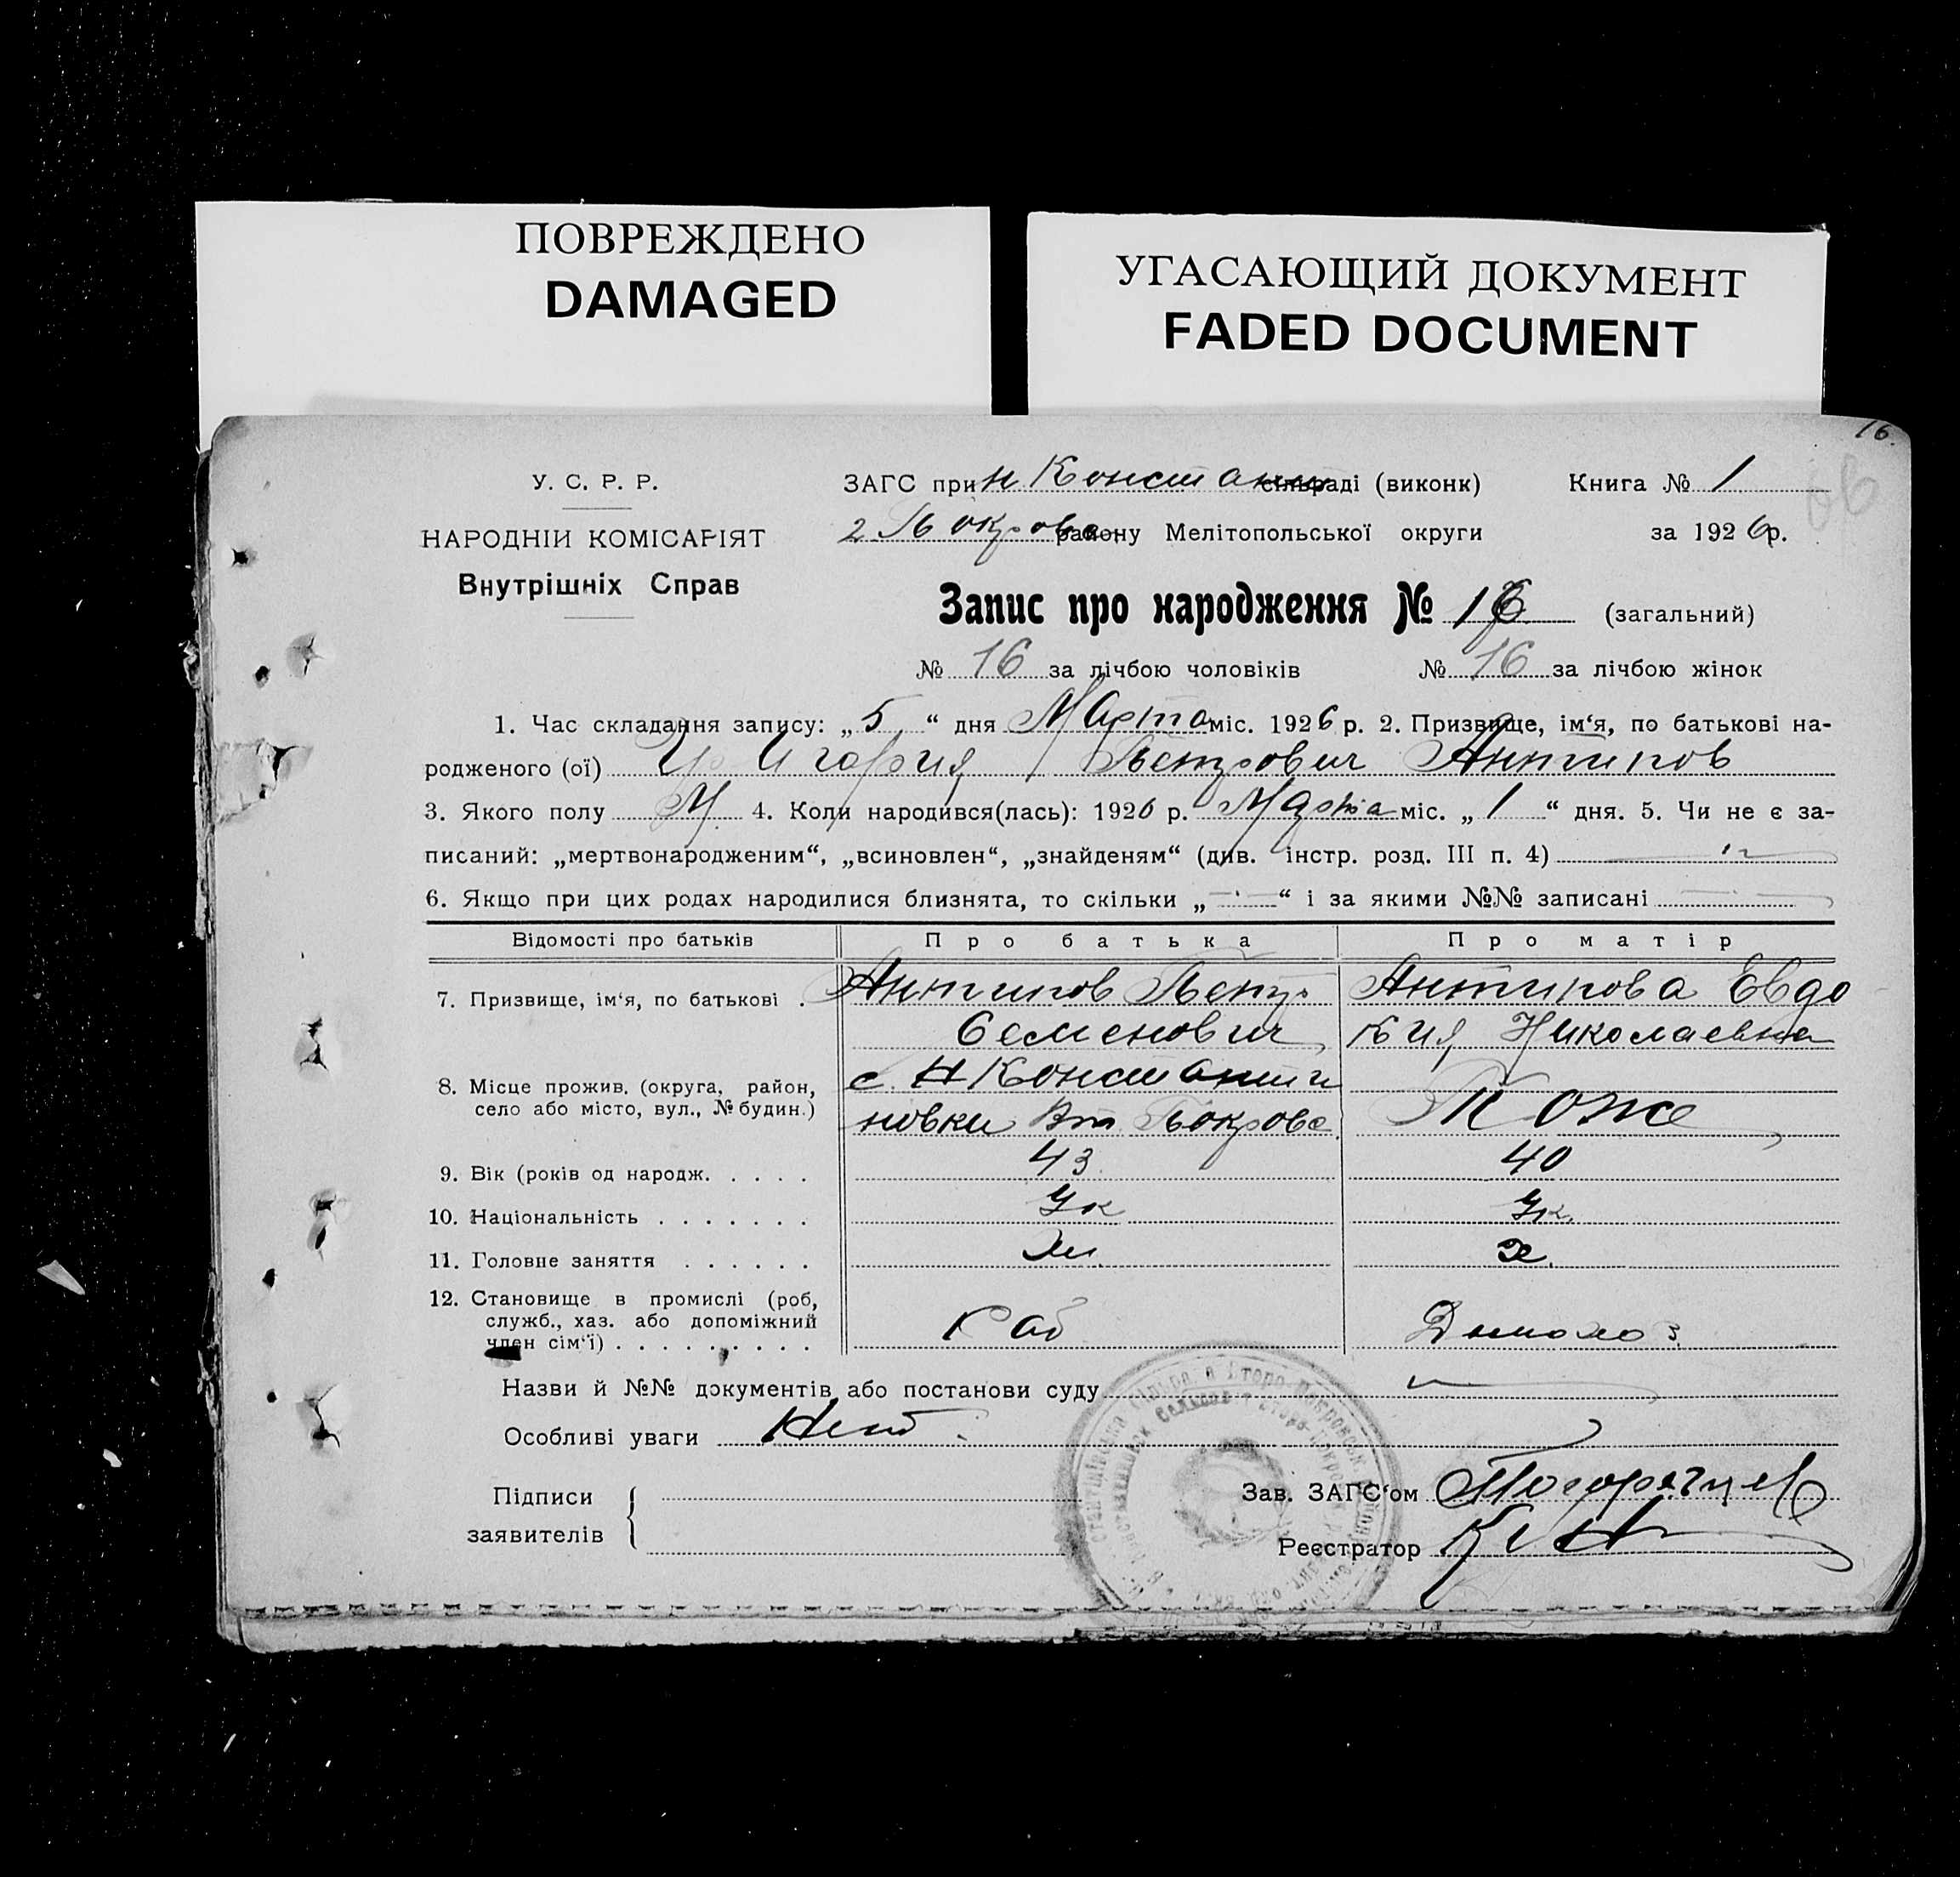 ПОВРЕЖДЕНО
DAMAGED
УГАСАЮЩИЙ ДОКУМЕНТ
FADED DOCUMENT
16.
У. С. Р. Р.
НАРОДНІЙ КОМІСАРІЯТ
Внутрішніх Справ
ЗАГС при Н Констант сільраді (виконк) Книга № 1
2 Покров району Мелітопольської округи за 1926 р.
Запис про народження № 16 (загальний)
№ 16 за лічбою чоловіків № 16 за лічбою жінок
1. Час складання запису: „5" дня Марта міс. 1926 р. 2. Призвище, ім'я, по батькові на-
родженого (ої) Петрович Антипов
3. Якого полу М. 4. Коли народився(лась): 1926 р. Марта міс. „1" дня. 5. Чи не є за-
писаний: „мертвонародженим", „всиновлен", „знайденям" (див. інстр. розд. III п. 4)
6. Якщо при цих родах народилися близнята, то скільки „—" і за якими №№ записані
Відомості про батьків Про батька Про матір
7. Призвище, ім'я, по батькові . Антипов Петр Антипова Евдо
Семенович кия Николаевна
8. Місце прожив. (округа, район, с. Н Константи
село або місто, вул., № будин.) новки Вт Покровс. Тоже
9. Вік (років од народж. . . . . 43 40
10. Національність . . . . . . . Ук Ук.
11. Головне заняття . . . . . . Хл. Х.
12. Становище в промислі (роб,
служб., хаз. або допоміжний
член сім'ї) . . . . . . . . .
Назви й №№ документів або постанови суду
Особливі уваги Нет
Підписи
заявителів
Зав. ЗАГС'ом
Реєстратор